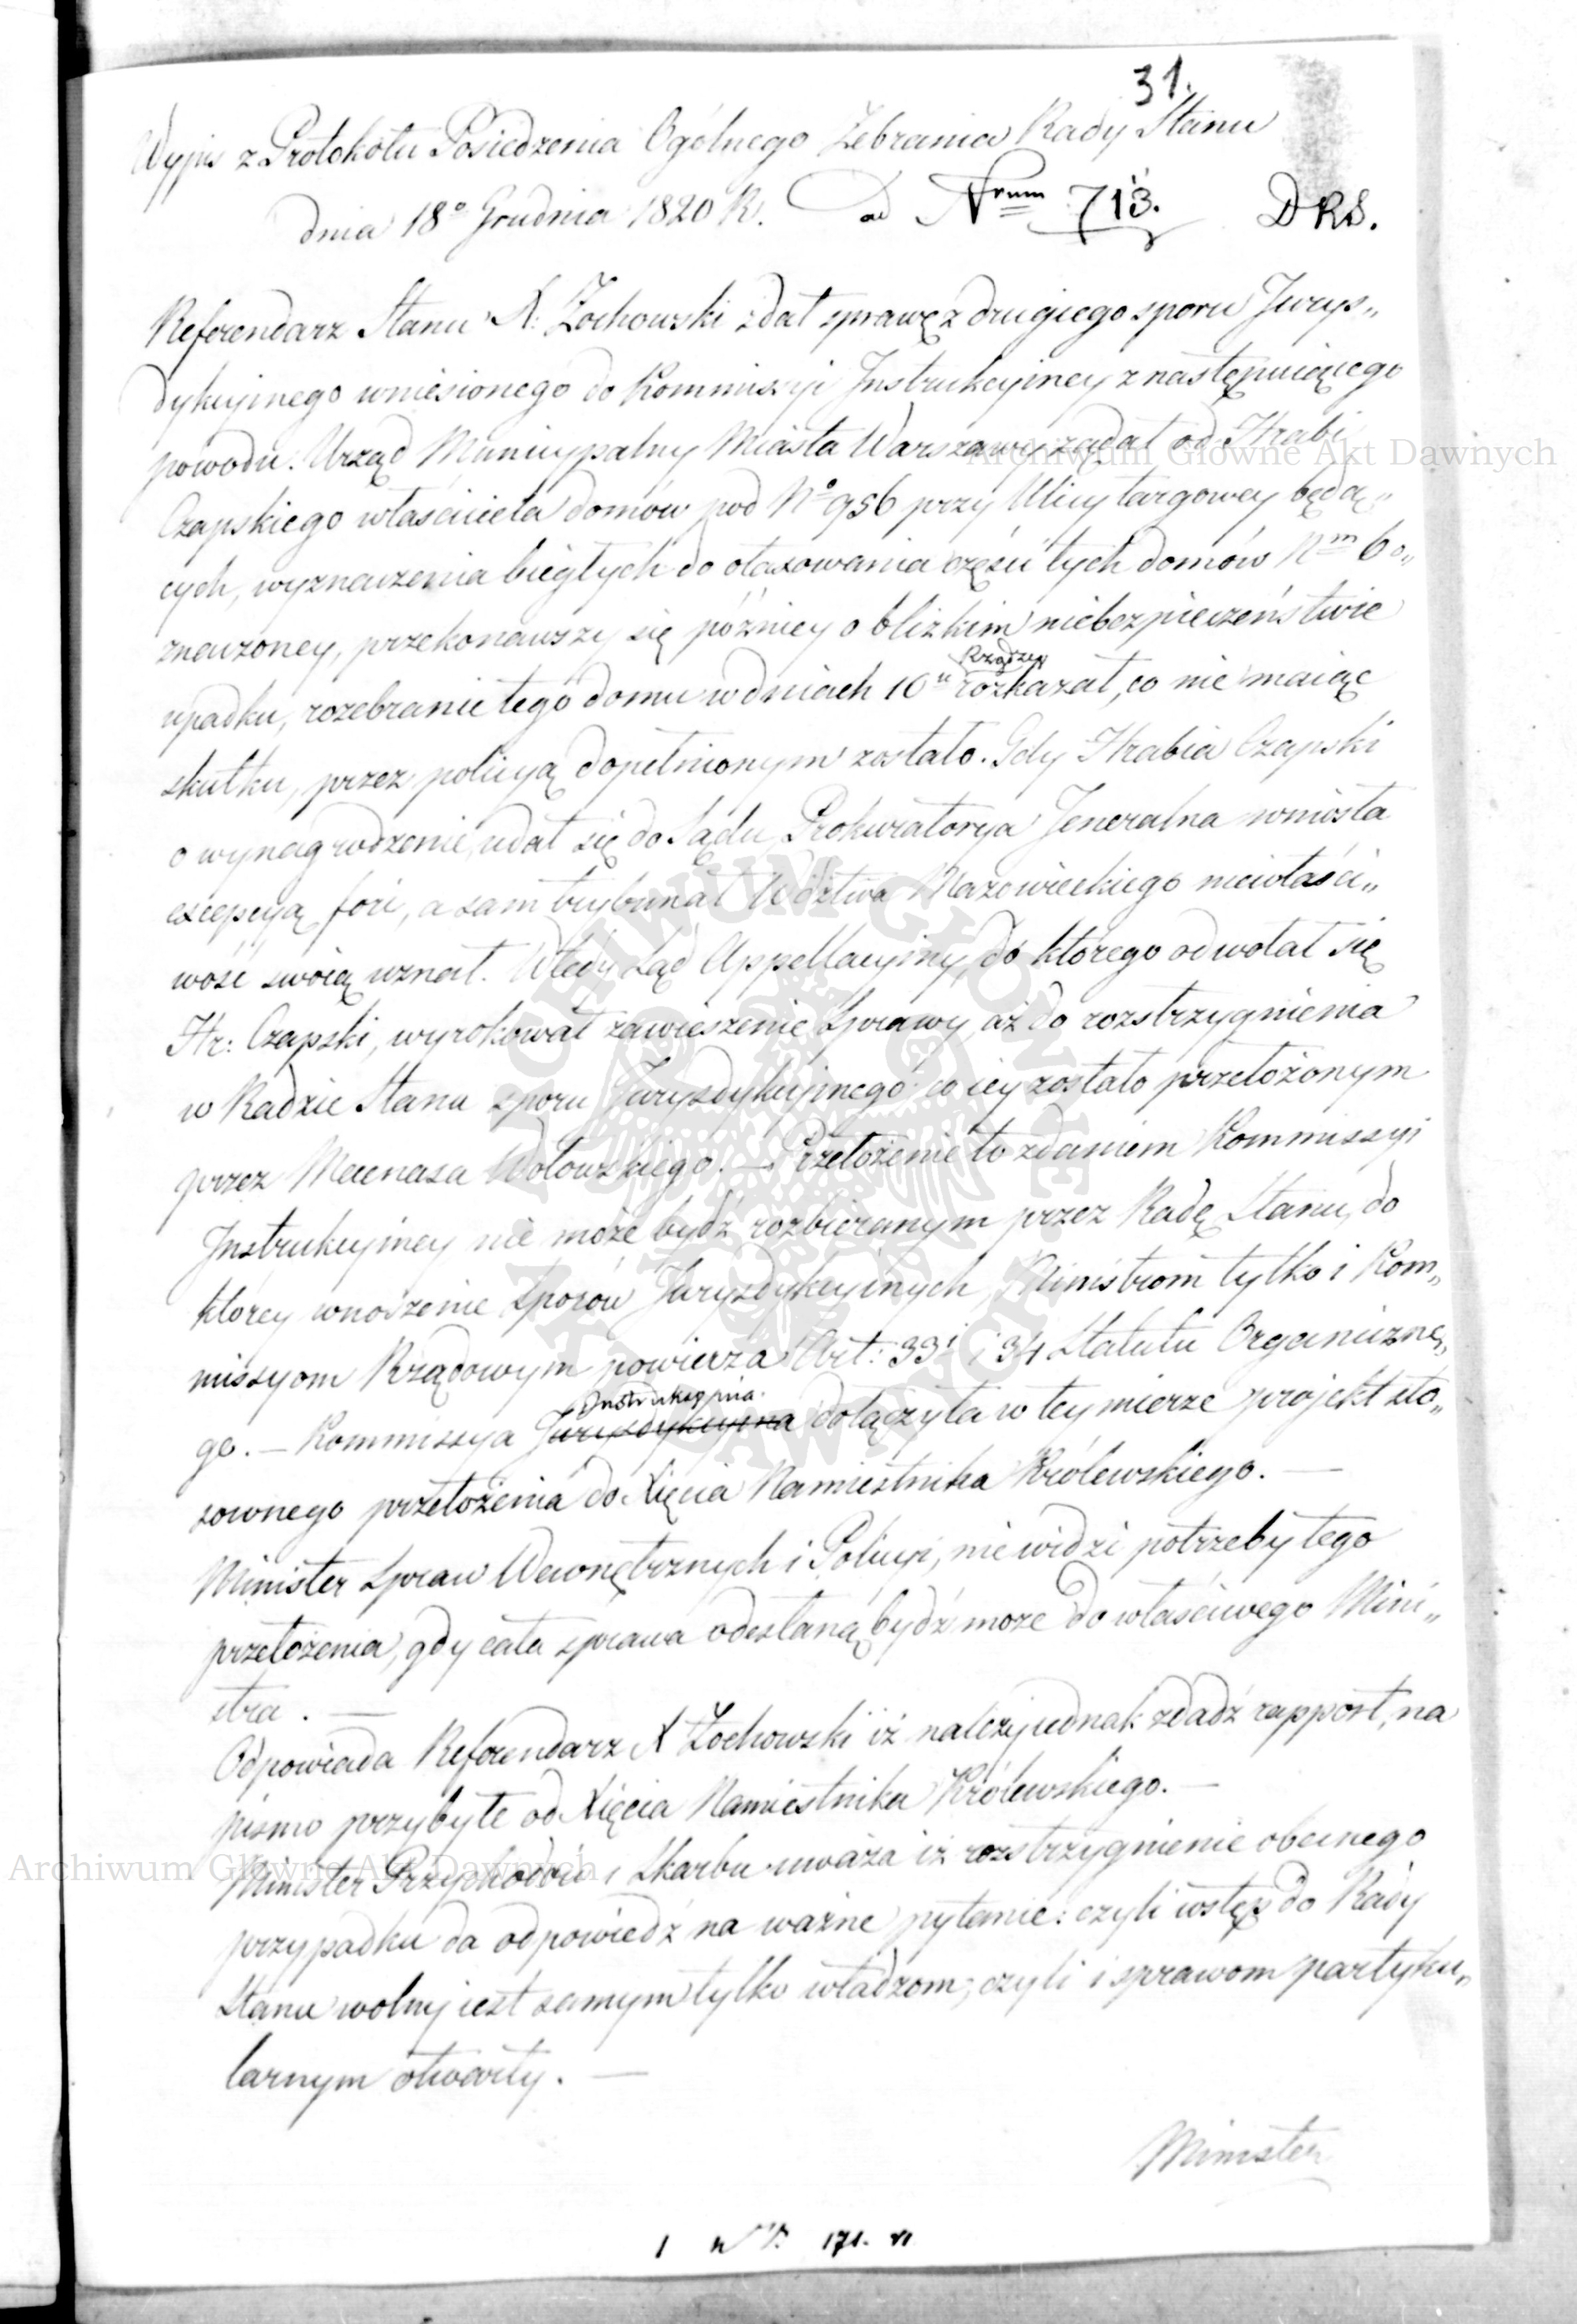 31.
Wypis z Protokołu Posiedzenia Ogólnego Zebrania Rady Stanu
dnia 18° Grudnia 1820 R. ad Nrum 713. DRS.
Referendarz Stanu X. Żochowski zdał sprawę z drugiego sporu Jurys„
dykcyinego wniesionego do Kommissyi Instrukcyiney z następuiącego
powodu. Urząd Municypalny Miasta Warszawy żądał od Hrabi
Czapskiego właściciela domów pod N° 956 przy Ulicy targowey będą„
cych, wyznaczenia biegłych do otaxowania części tych domów Nm 6 o„
znaczoney, przekonawszy się późniey o blizkim niebezpieczeństwie
Rządzcy
upadku, rozebranie tego domu w dniach 10u rozkazał, co nie maiąc
skutku, przez policyą dopełnionym zostało. Gdy Hrabia Czapski
o wynagrodzenie, udał się do Sądu, Prokuratorya Jeneralna wniosła
excepcyą fori, a sam trybunał Wdztwa Mazowieckiego niewłaści„
wość swoią uznał. Wtedy Sąd Appellacyiny, do którego odwołał się
Hr: Czapski, wyrokował zawieszenie Sprawy, aż do rozstrzygnienia
w Radzie Stanu sporu Juryzdykcyinego co iey zostało przełożonym
przez Mecenasa Wołowskiego. — Przełożenie to zdaniem Kommissyi
Instrukcyiney nie może bydź rozbieranym przez Radę Stanu, do
którey wnoszenie Sporów Juryzdykcyinych, Ministrom tylko i Kom„
missyom Rządowym powierza Art: 33 i 34 Statutu Organiczne„
Instrukcyina.
go. — Kommissya Juryzdykcyina dołączyła w tey mierze projekt sto„
sownego przełożenia do Xięcia Namiestnika Królewskiego. —
Minister Spraw Wewnętrznych i Policyi, nie widzi potrzeby tego
przełożenia, gdy cała sprawa odesłaną bydź może do właściwego Mini„
stra. —
Odpowiada Referendarz X Żochowski iż należy jednak zdadź rapport, na
pismo przybyłe od Xięcia Namiestnika Królewskiego. —
Minister Przychodów i Skarbu uważa iż rozstrzygnienie obecnego
przypadku da odpowiedź na ważne pytanie: czyli wstęp do Rady
Stanu wolny iest samym tylko władzom; czyli i sprawom partyku„
larnym otwarty. —
Minister
1 171. VI
Archiwum Główne Akt Dawnych
Archiwum Główne Akt Dawnych
ARCHIWUM GŁÓWNE AKT DAWNYCH